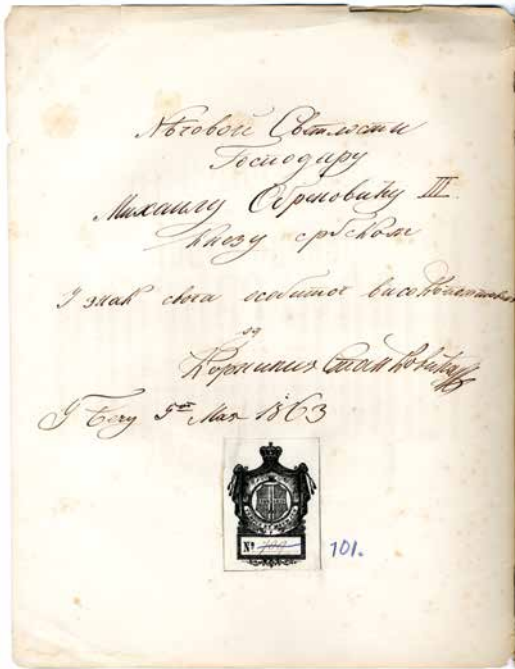 Нѣговой Свѣтлости
Господару
Михаилу Обреновићу III.
Князу србском
У знак свога особитог високопочитания
од
Корнилия Станковића
У Бечу 5ог Мая 1863
№
101.